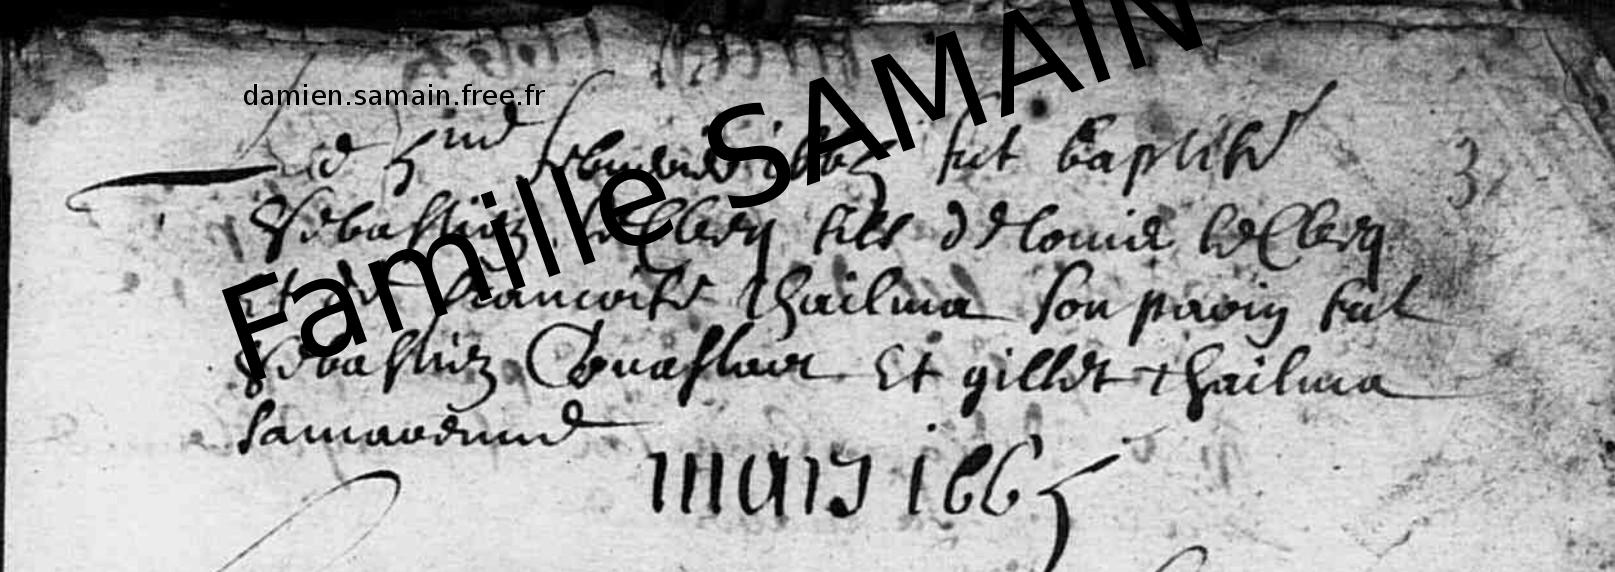 damien.samain.free.fr
Famille SAMAIN
Le 5me febvrier 1665 fut baptise
3
Sebastien le Clercq fils de Louis le Clercq
Et de francoise thailma son parin fut
Sebastien Et gilles thailma
sa marenne
mars 1665